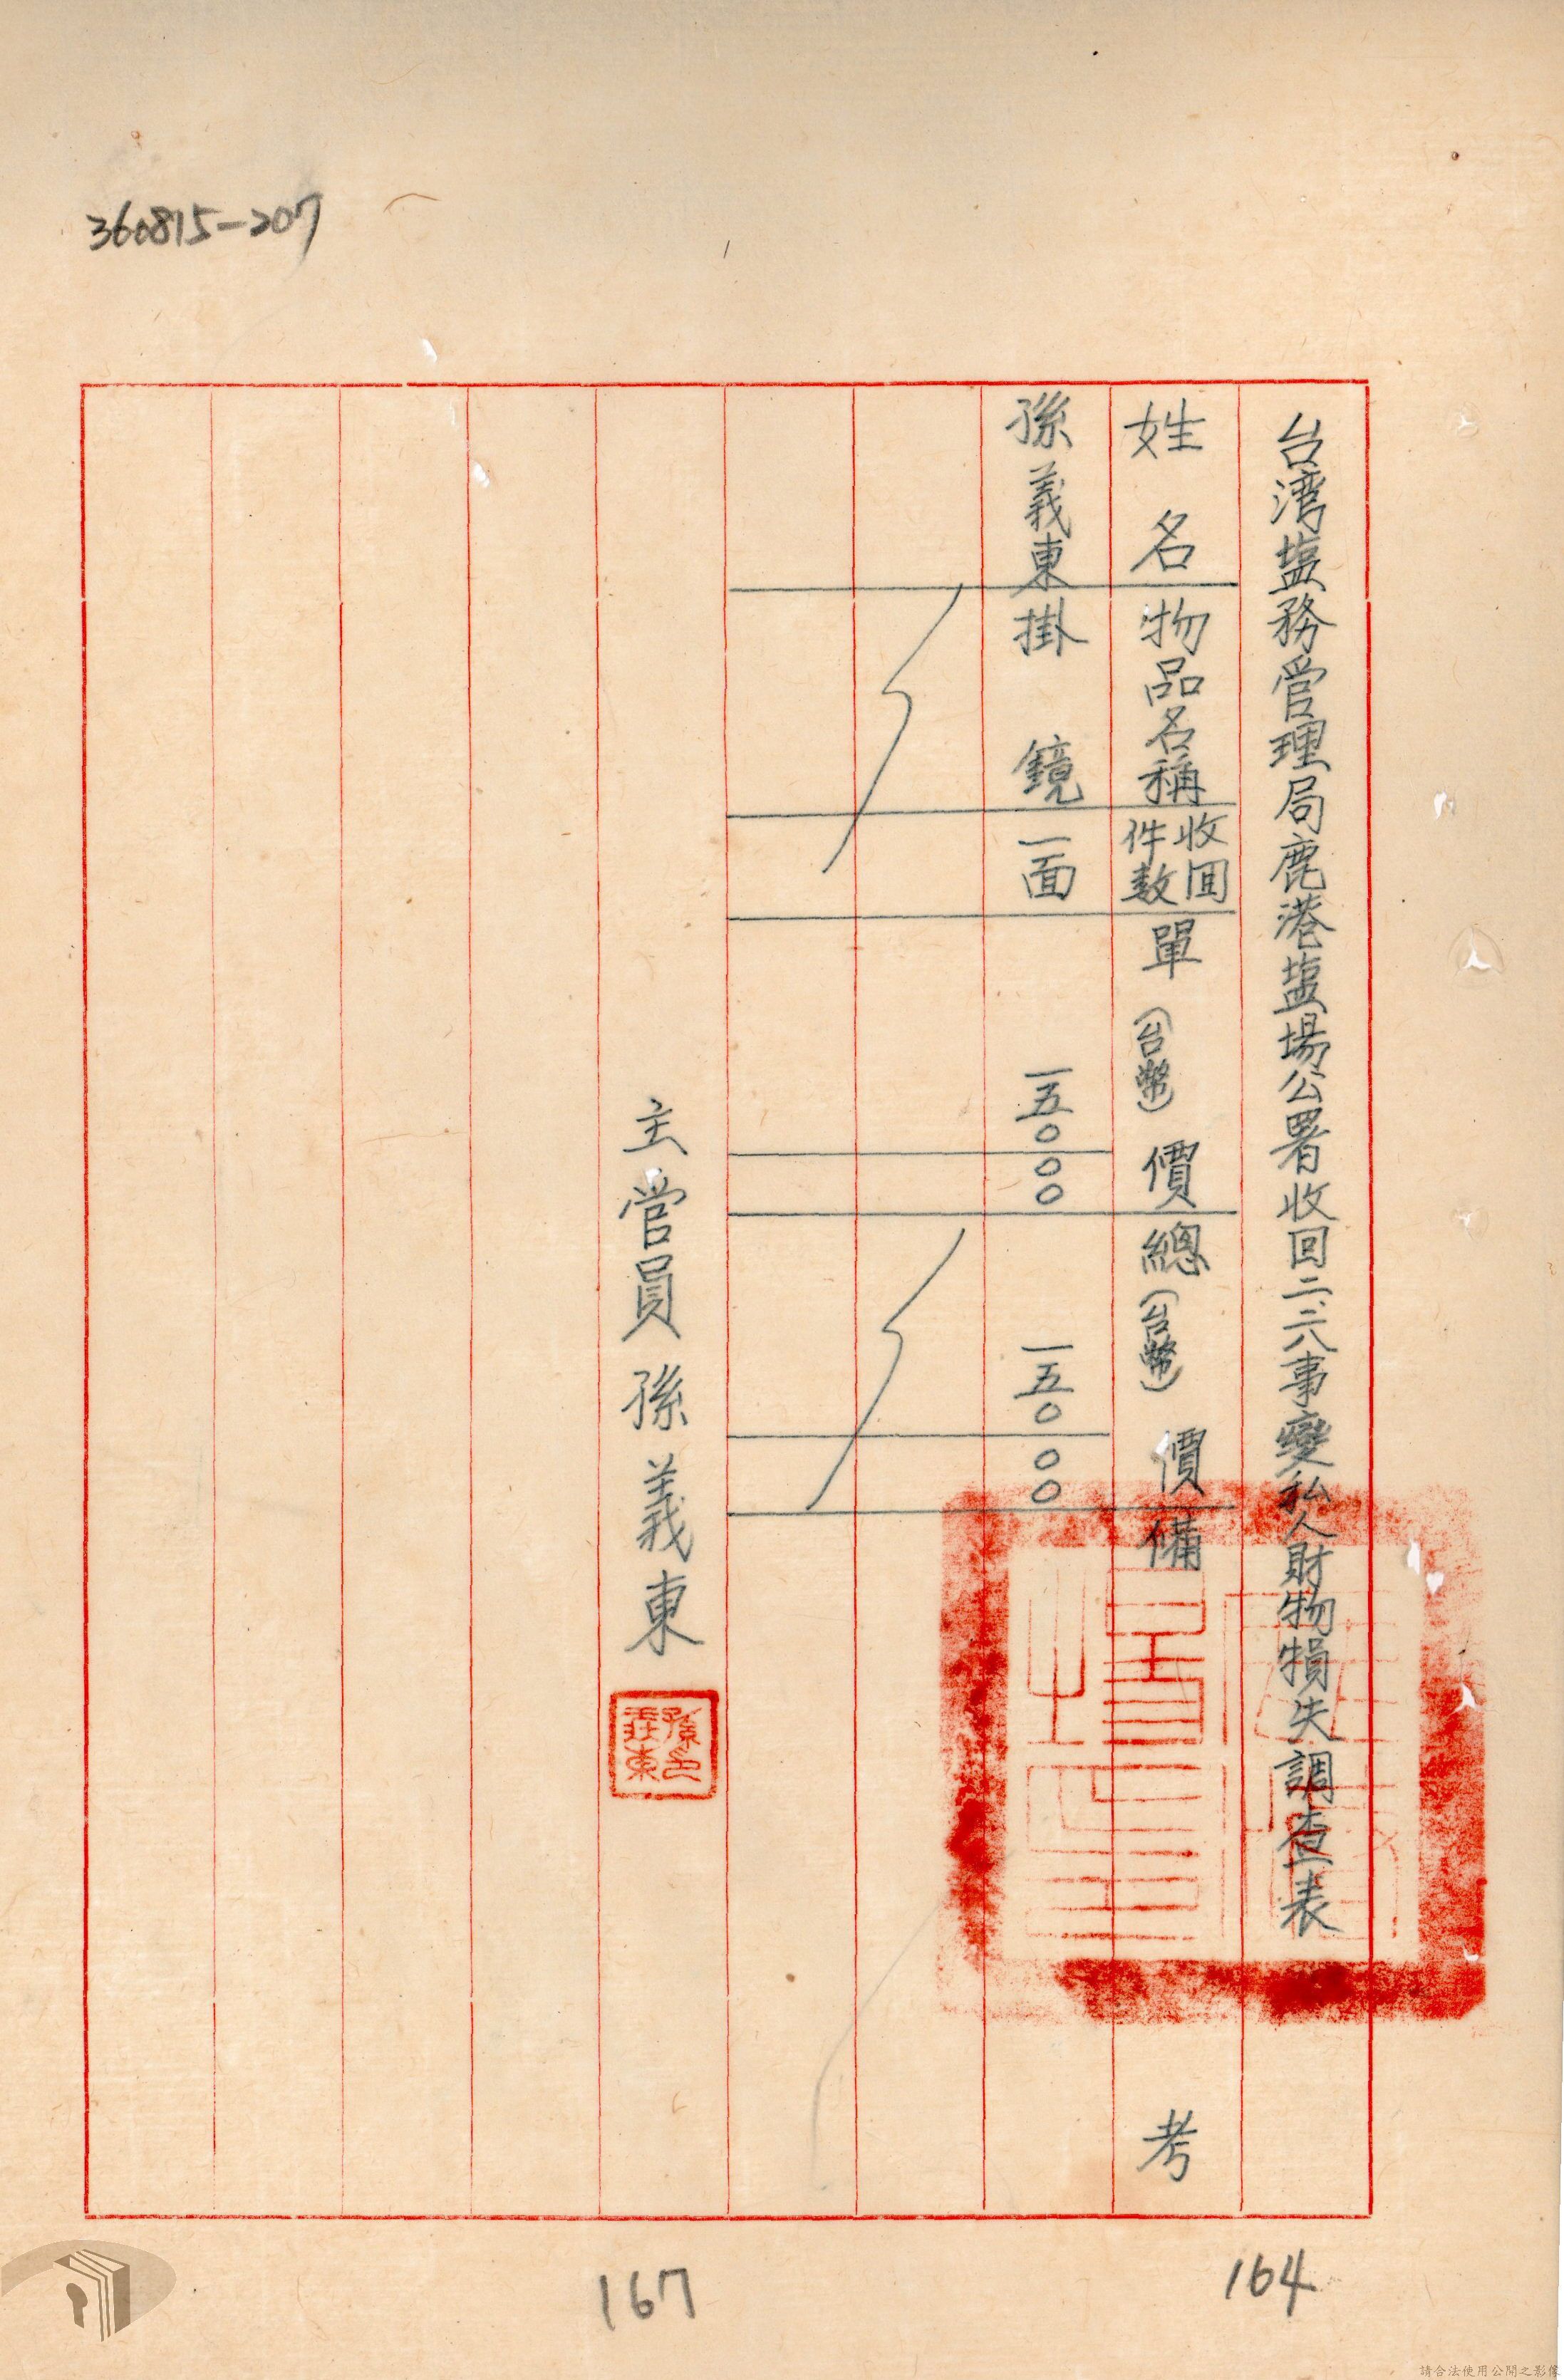 360815-207
台湾塩務管理局鹿港塩場公署收回二.二八事變私人財物損失調查表
姓名
物品名稱
收回
件数
單(台幣)價
總(台幣)價
備考
孫義東
掛鏡
一面
一五〇〇〇
一五〇〇〇
主管員 孫義東
164
167
請合法使用公開之影像